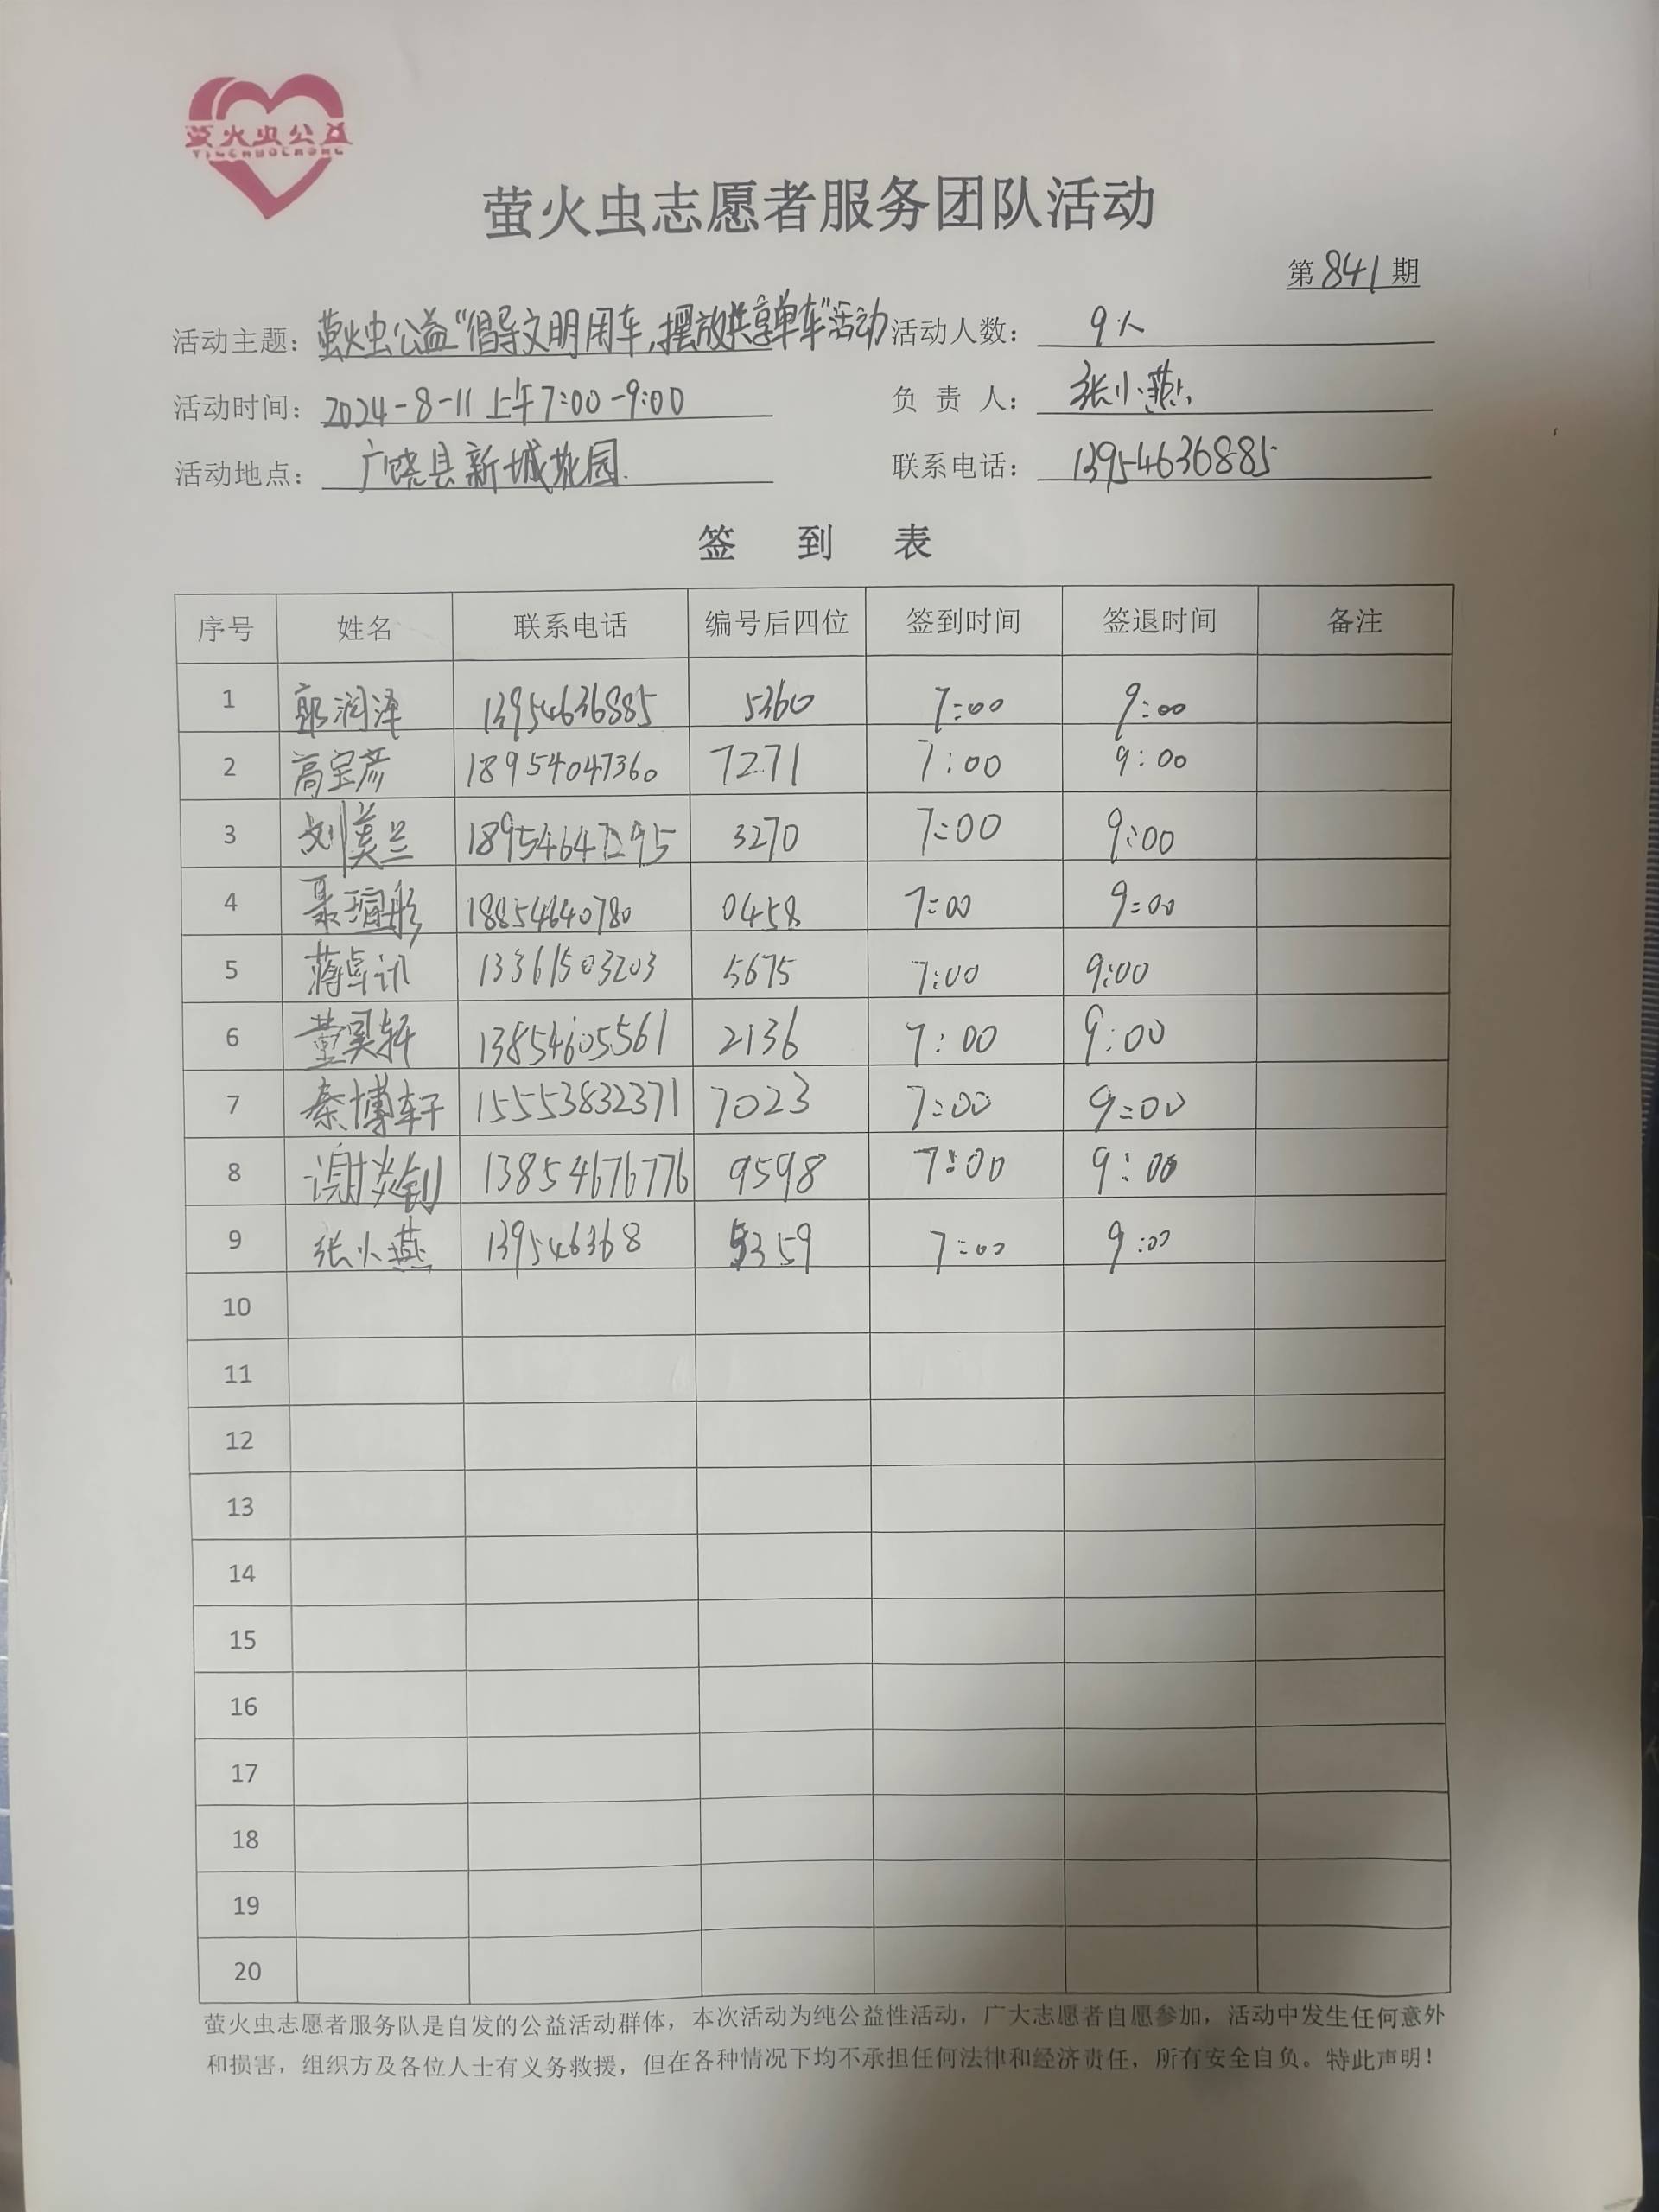 萤火虫公益
YINGHUOCHONG
萤火虫志愿者服务团队活动
第841期
活动主题：萤火虫公益“倡导文明用车，摆放共享单车”活动 活动人数：9人
活动时间：2024-8-11 上午7:00-9:00 负 责 人：张小燕
活动地点：广饶县新城花园. 联系电话：13954636885
签 到 表
序号 姓名 联系电话 编号后四位 签到时间 签退时间 备注
1 郭润泽 13954636885 5360 7:00 9:00
2 高宝彦 18954047360 7271 7:00 9:00
3 刘美兰 18954647295 3270 7:00 9:00
4 聂瑄彤 18854640780 0458 7:00 9:00
5 蒋卓讯 13361503203 5675 7:00 9:00
6 董昊轩 13854605561 2136 7:00 9:00
7 秦博轩 15553832371 7023 7:00 9:00
8 谢炎钊 13854676776 9598 7:00 9:00
9 张小燕 139546368 5359 7:00 9:00
10
11
12
13
14
15
16
17
18
19
20
萤火虫志愿者服务队是自发的公益活动群体，本次活动为纯公益性活动，广大志愿者自愿参加，活动中发生任何意外
和损害，组织方及各位人士有义务救援，但在各种情况下均不承担任何法律和经济责任，所有安全自负。特此声明！